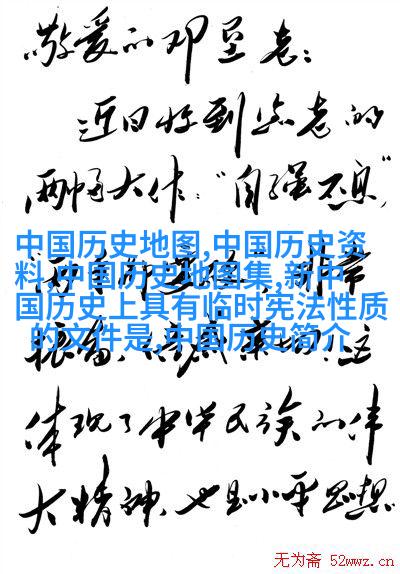 敬爱的邓垦老：
近日收到您老的
两幅大作："自强不息"
中国历史地图,中国历史资
料,中国历史地图集,新中
国历史上具有临时宪法性质
的文件是,中国历史简介
非常
振奋、
这
体现了中华民族的伟
大精神，也是小平思想
无为斋 52wwz.cn